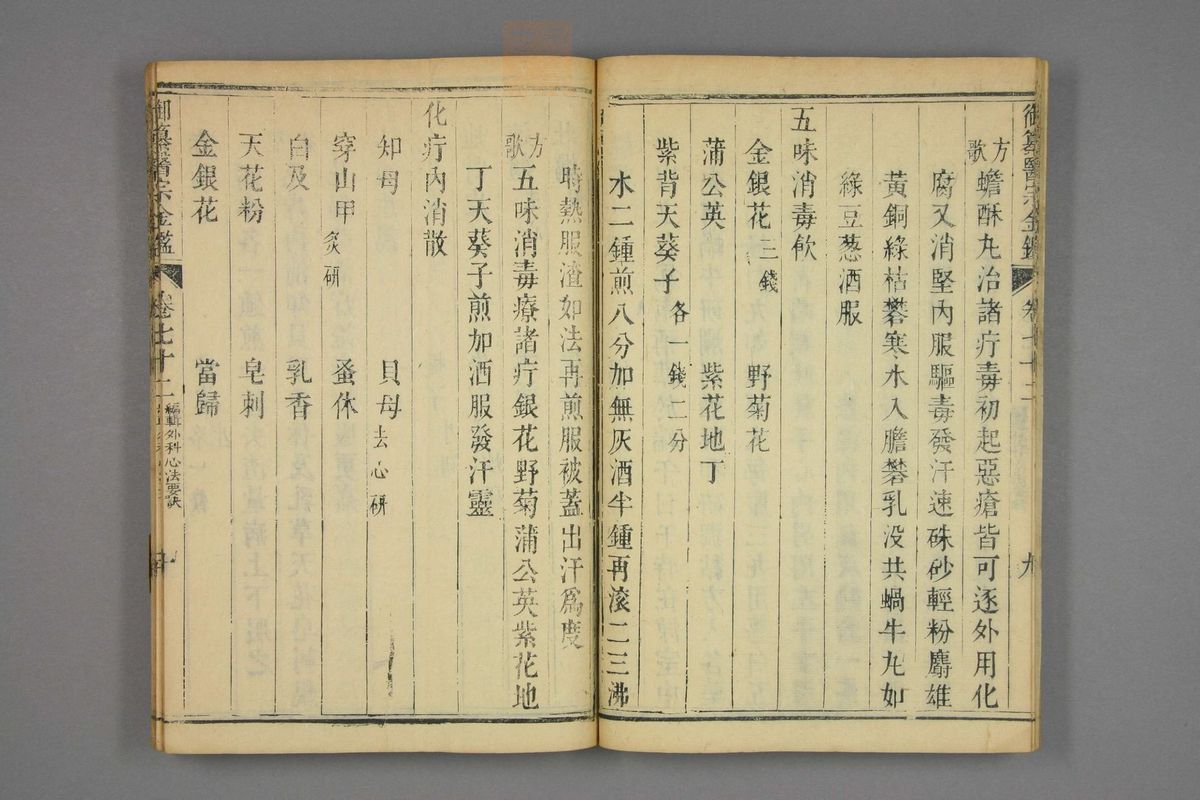 御纂醫宗金鑑 卷七十二 九
方歌 蟾酥丸治諸疔毒初起惡瘡皆可逐外用化
腐又消堅內服驅毒發汗速硃砂輕粉麝雄
黃銅綠枯礬寒水入膽礬乳没共蝸牛丸如
綠豆葱酒服
五味消毒飲
金銀花三錢 野菊花
蒲公英 紫花地丁
紫背天葵子各一錢二分
水二鍾煎八分加無灰酒半鍾再滾二三沸
時熱服渣如法再煎服被蓋出汗爲度
方歌 五味消毒療諸疔銀花野菊蒲公英紫花地
丁天葵子煎加酒服發汗靈
化疔內消散
知母 貝母去心研
穿山甲炙研 蚤休
白及 乳香
天花粉 皂刺
金銀花 當歸
御纂醫宗金鑑 卷七十二 編輯外科心法要訣 十